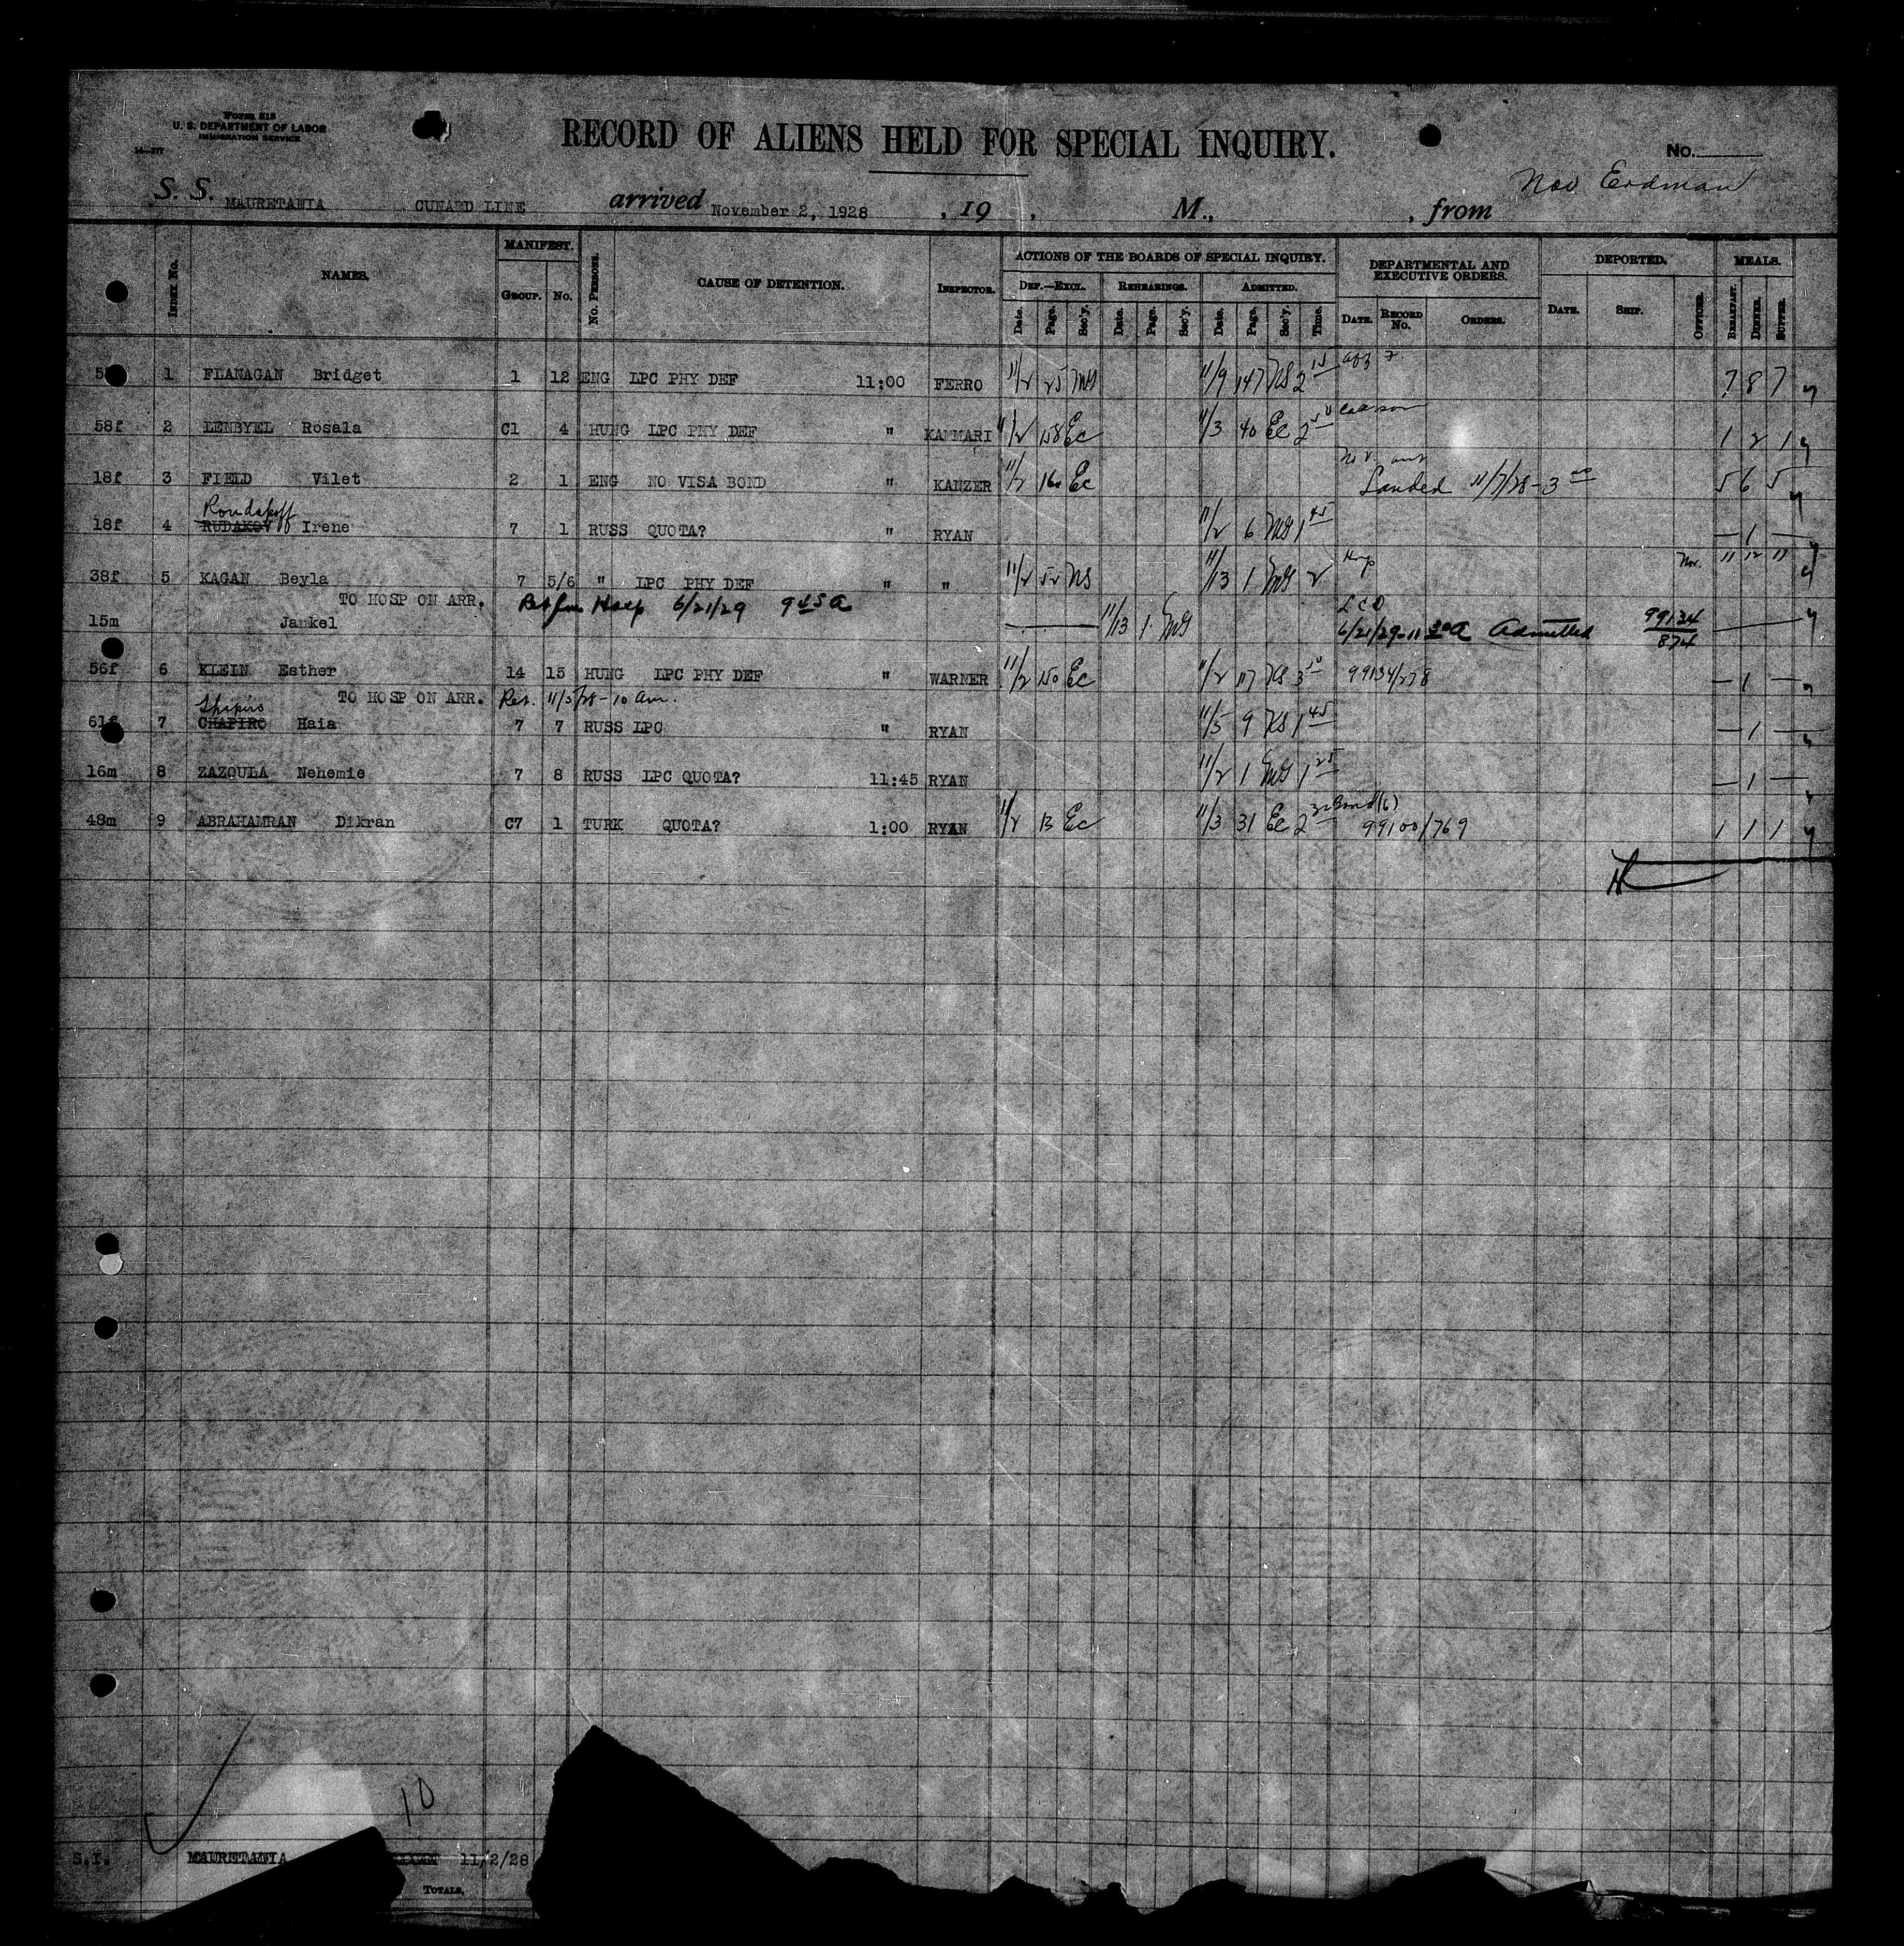 Form 818
U. S. DEPARTMENT OF LABOR
IMMIGRATION SERVICE
RECORD OF ALIENS HELD FOR SPECIAL INQUIRY.
No.
Nov Erdman
S. S. MAURETANIA CUNARD LINE arrived November 2, 1928, 19 , M., , from
Index No. NAMES. MANIFEST. Group. No. No. Persons. CAUSE OF DETENTION. Inspector. ACTIONS OF THE BOARDS OF SPECIAL INQUIRY. Def.—Excl. Date. Page. Sec'y. Rehearings. Date. Page. Sec'y. Admitted. Date. Page. Sec'y. Time. DEPARTMENTAL AND EXECUTIVE ORDERS. Date. Record No. Orders. DEPORTED. Date. Ship. Officer. MEALS. Breakfast. Dinner. Supper.
1 FLANAGAN Bridget 1 12 ENG LPC PHY DEF 11:00 FERRO 11/2 25 MS 11/9 147 NS 2 15 7 8 7
58f 2 LENBYEL Rosala C1 4 HUNG LPC PHY DEF " KAMMARI 11/2 158 Ec 11/3 40 Ec 2 50 1 2 1
18f 3 FIELD Vilet 2 1 ENG NO VISA BOND " KANZER 11/2 160 Ec Landed 11/7/28 - 3 00 5 6 5
Roudakoff
18f 4 RUDAKOV Irene 7 1 RUSS QUOTA? " RYAN 11/2 6 MS 1 45 — 1 —
38f 5 KAGAN Beyla 7 5/6 " LPC PHY DEF " " 11/2 52 NS 11/13 1 MS 2 Hosp Nov. 11 12 11
TO HOSP ON ARR. Ret fm Hosp 6/21/29 9 45 a
15m Jankel 11/13 1 MS 6/21/29 - 11 30 a Admitted 99134/874
56f 6 KLEIN Esther 14 15 HUNG LPC PHY DEF " WARNER 11/2 150 Ec 11/2 117 NS 3 50 99134/278 — 1 —
TO HOSP ON ARR. Ret. 11/5/28 - 10 am.
Shapiro
61f 7 CHAPIRO Haia 7 7 RUSS LPC " RYAN 11/5 9 NS 1 45 — 1 —
16m 8 ZAZOULA Nehemie 7 8 RUSS LPC QUOTA? 11:45 RYAN 11/2 1 MS 1 25 — 1 —
48m 9 ABRAHAMRAN Dikran C7 1 TURK QUOTA? 1:00 RYAN 11/2 13 Ec 11/3 31 Ec 2 30 Bond (6) 99100/769 1 1 1
10
S.I. MAURETANIA 11/2/28
Totals,